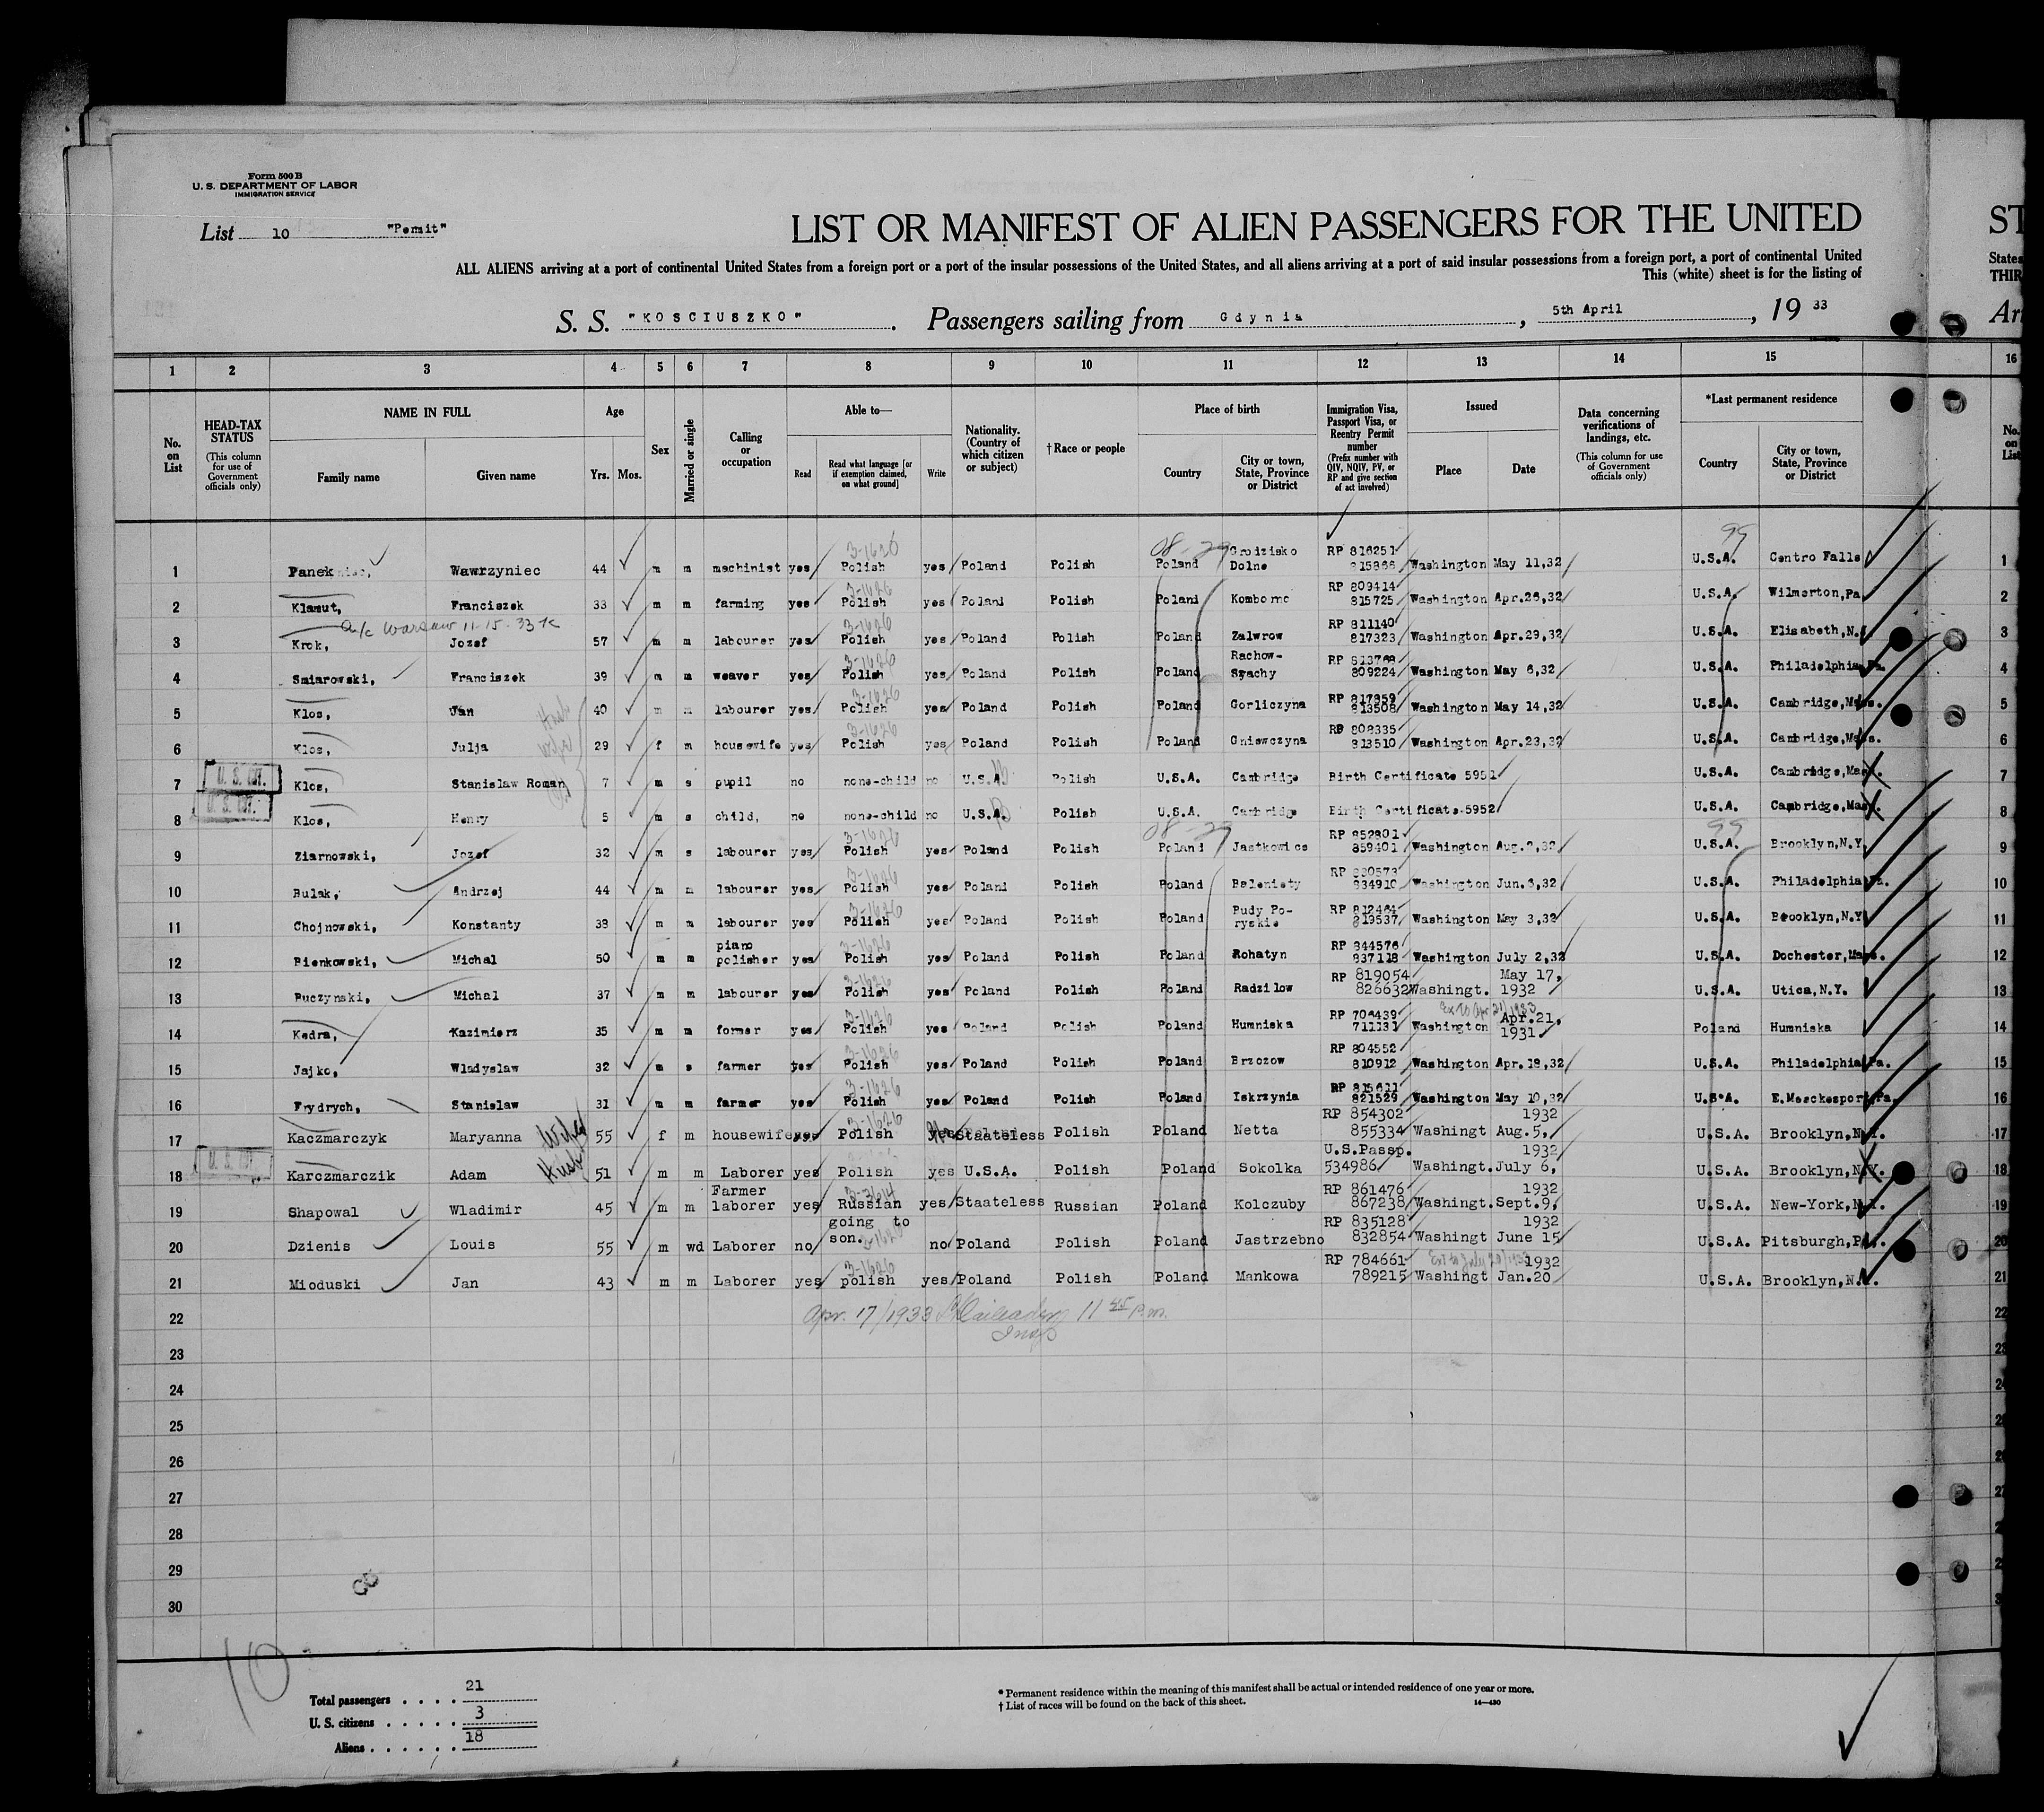 Form 500 B
U. S. DEPARTMENT OF LABOR
IMMIGRATION SERVICE
List 10 "Permit"
LIST OR MANIFEST OF ALIEN PASSENGERS FOR THE UNITED ST
ALL ALIENS arriving at a port of continental United States from a foreign port or a port of the insular possessions of the United States, and all aliens arriving at a port of said insular possessions from a foreign port, a port of continental United States
This (white) sheet is for the listing of THIR
S. S. "KOSCIUSZKO". Passengers sailing from Gdynia, 5th April, 19 33
1 2 3 4 5 6 7 8 9 10 11 12 13 14 15 16
No. on List
HEAD-TAX STATUS (This column for use of Government officials only)
NAME IN FULL Family name Given name
Age Yrs. Mos.
Sex
Married or single
Calling or occupation
Able to— Read Read what language [or if exemption claimed, on what ground] Write
Nationality. (Country of which citizen or subject)
† Race or people
Place of birth Country City or town, State, Province or District
Immigration Visa, Passport Visa, or Reentry Permit number (Prefix number with QIV, NQIV, PV, or RP and give section of act involved)
Issued Place Date
Data concerning verifications of landings, etc. (This column for use of Government officials only)
*Last permanent residence Country City or town, State, Province or District
No. on List
3-1626 08-29 99
1 Panek Wawrzyniec 44 m m machinist yes Polish yes Poland Polish Poland Grodzisko Dolne RP 816251 815866 Washington May 11,32 U.S.A. Centro Falls 1
3-1626
2 Klamut, Franciszek 33 m m farming yes Polish yes Poland Polish Poland Komborno RP 809414 815725 Washington Apr.26,32 U.S.A. Wilmerton,Pa 2
Warsaw 11-15-33 3-1626
3 Krok, Jozef 57 m m labourer yes Polish yes Poland Polish Poland Zalwrow RP 811140 817323 Washington Apr.29,32 U.S.A. Elisabeth,N.J. 3
3-1626
4 Smiarowski, Franciszek 39 m m weaver yes Polish yes Poland Polish Poland Rachow- Syachy RP 813768 809224 Washington May 6,32 U.S.A. Philadelphia Pa. 4
Husb 3-1626
5 Klos, Jan 40 m m labourer yes Polish yes Poland Polish Poland Gorliczyna RP 817959 813508 Washington May 14,32 U.S.A. Cambridge,Mass. 5
wife 3-1626
6 Klos, Julja 29 f m housewife yes Polish yes Poland Polish Poland Gniewczyna RP 808335 813510 Washington Apr.23,32 U.S.A. Cambridge,Mass. 6
U. S. CIT.
7 Klos, Stanislaw Roman 7 m s pupil no none-child no U.S.A. Polish U.S.A. Cambridge Birth Certificate 5951 U.S.A. Cambridge,Mass. 7
U. S. CIT.
8 Klos, Henry 5 m s child, no none-child no U.S.A. Polish U.S.A. Cambridge Birth Certificate-5952 U.S.A. Cambridge,Mass. 8
3-1626 08-29 99
9 Ziarnowski, Jozef 32 m s labourer yes Polish yes Poland Polish Poland Jastkowice RP 852801 859401 Washington Aug.2,32 U.S.A. Brooklyn,N.Y. 9
3-1626
10 Bulak, Andrzej 44 m m labourer yes Polish yes Poland Polish Poland RP 830573 834910 Washington Jun.6,32 U.S.A. Philadelphia Pa. 10
3-1626
11 Chojnowski, Konstanty 38 m m labourer yes Polish yes Poland Polish Poland Rudy Po- ryskie RP 812464 819537 Washington May 3,32 U.S.A. Brooklyn,N.Y 11
3-1626
12 Bienkowski, Michal 50 m m piano polisher yes Polish yes Poland Polish Poland Rohatyn RP 844576 837118 Washington July 2,32 U.S.A. Dochester,Mass. 12
3-1626
13 Puczynski, Michal 37 m m labourer yes Polish yes Poland Polish Poland Radzilow RP 819054 826632 Washingt. May 17, 1932 U.S.A. Utica,N.Y. 13
3-1626 Ex to Apr 21/1933
14 Kedra, Kazimierz 35 m m former yes Polish yes Poland Polish Poland Humniska RP 706439 711131 Washington Apr.21, 1931 Poland Humniska 14
3-1626
15 Jajko, Wladyslaw 32 m s farmer yes Polish yes Poland Polish Poland Brzozow RP 804552 810912 Washington Apr.18,32 U.S.A. Philadelphia Pa. 15
3-1626
16 Frydrych, Stanislaw 31 m m farmer yes Polish yes Poland Polish Poland Iskrzynia RP 815611 821529 Washington May 10,32 U.S.A. E.Mesckesport,Pa. 16
Wife 3-1626
17 Kaczmarczyk Maryanna 55 f m housewife yes Polish yes Staateless Polish Poland Netta RP 854302 855334 Washingt Aug.5, 1932 U.S.A. Brooklyn,N.Y. 17
U. S. CIT. Husb
18 Karczmarczik Adam 51 m m Laborer yes Polish yes U.S.A. Polish Poland Sokolka U.S.Passp. 534986 Washingt. July 6, 1932 U.S.A. Brooklyn,N.Y. 18
3-3614
19 Shapowal Wladimir 45 m m Farmer laborer yes Russian yes Staateless Russian Poland Kolczuby RP 861476 867238 Washingt. Sept.9, 1932 U.S.A. New-York,N.Y. 19
20 Dzienis Louis 55 m wd Laborer no going to son. 3-1626 no Poland Polish Poland Jastrzebno RP 835128 832854 Washingt June 15 1932 U.S.A. Pitsburgh,Pa. 20
3-1626 Ext to July 20/1933
21 Mioduski Jan 43 m m Laborer yes polish yes Poland Polish Poland Mankowa RP 784661 789215 Washingt Jan.20 1932 U.S.A. Brooklyn,N.Y. 21
22 Apr. 17/1933 11 45 p.m. 22
Insp
23 23
24 24
25 25
26 26
27 27
28 2
29 2
30 3
10
Total passengers . . . . 21
U. S. citizens . . . . . 3
Aliens . . . . . . 18
* Permanent residence within the meaning of this manifest shall be actual or intended residence of one year or more.
† List of races will be found on the back of this sheet. 14—430